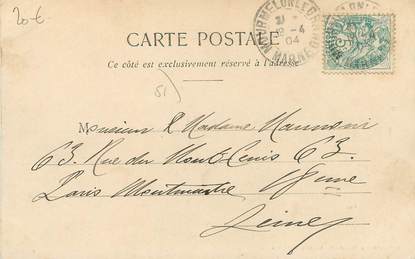 20 €
CARTE POSTALE
Ce côté est exclusivement réservé à l'adresse
51
Monsieur & Madame
63 Rue du Mont Cenis 63
Paris Montmartre
Seine